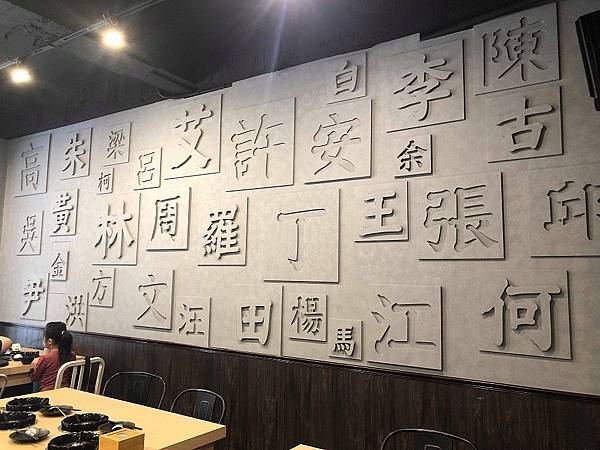 高 朱 梁 柯 呂 艾 許 白 安 李 余 陳 古
吳 黃 金 林 周 羅 丁 王 張 邱
尹 洪 方 文 汪 田 楊 馬 江 何